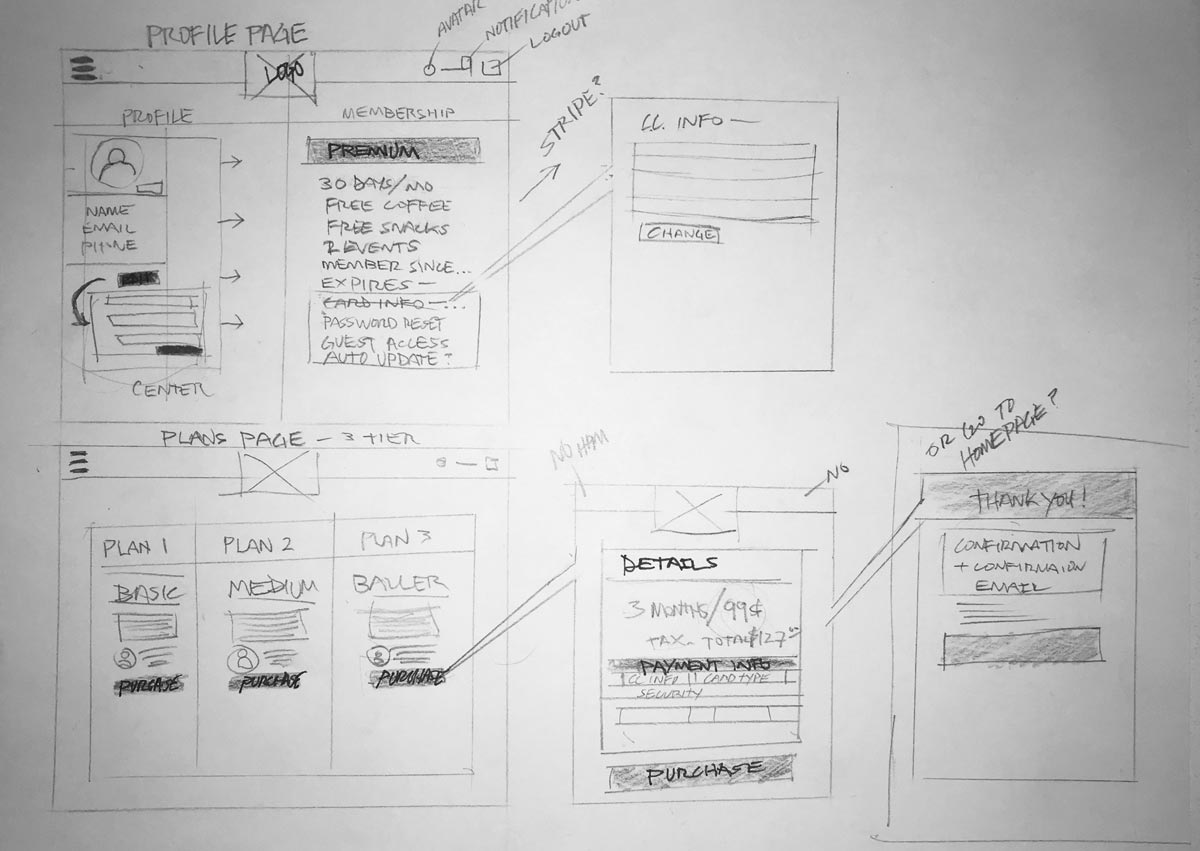 PROFILE PAGE
AVATAR
NOTIFICATION
LOGOUT
LOGO
PROFILE
MEMBERSHIP
PREMIUM
30 DAYS/MO
FREE COFFEE
FREE SNACKS
2 EVENTS
MEMBER SINCE...
EXPIRES —
CARD INFO — ...
PASSWORD RESET
GUEST ACCESS
AUTO UPDATE?
NAME
EMAIL
PHONE
CENTER
STRIPE?
C.C. INFO —
CHANGE
PLANS PAGE – 3 TIER
PLAN 1
BASIC
PURCASE
PLAN 2
MEDIUM
PURCHASE
PLAN 3
BALLER
PURCHASE
NO HAM
NO
DETAILS
3 MONTHS/99¢
TAX – TOTAL $127.00
PAYMENT INFO
CC INFO CARD TYPE
SECURITY
PURCHASE
OR GO TO
HOMEPAGE?
THANK YOU!
CONFIRMATION
+ CONFIRMAION
EMAIL